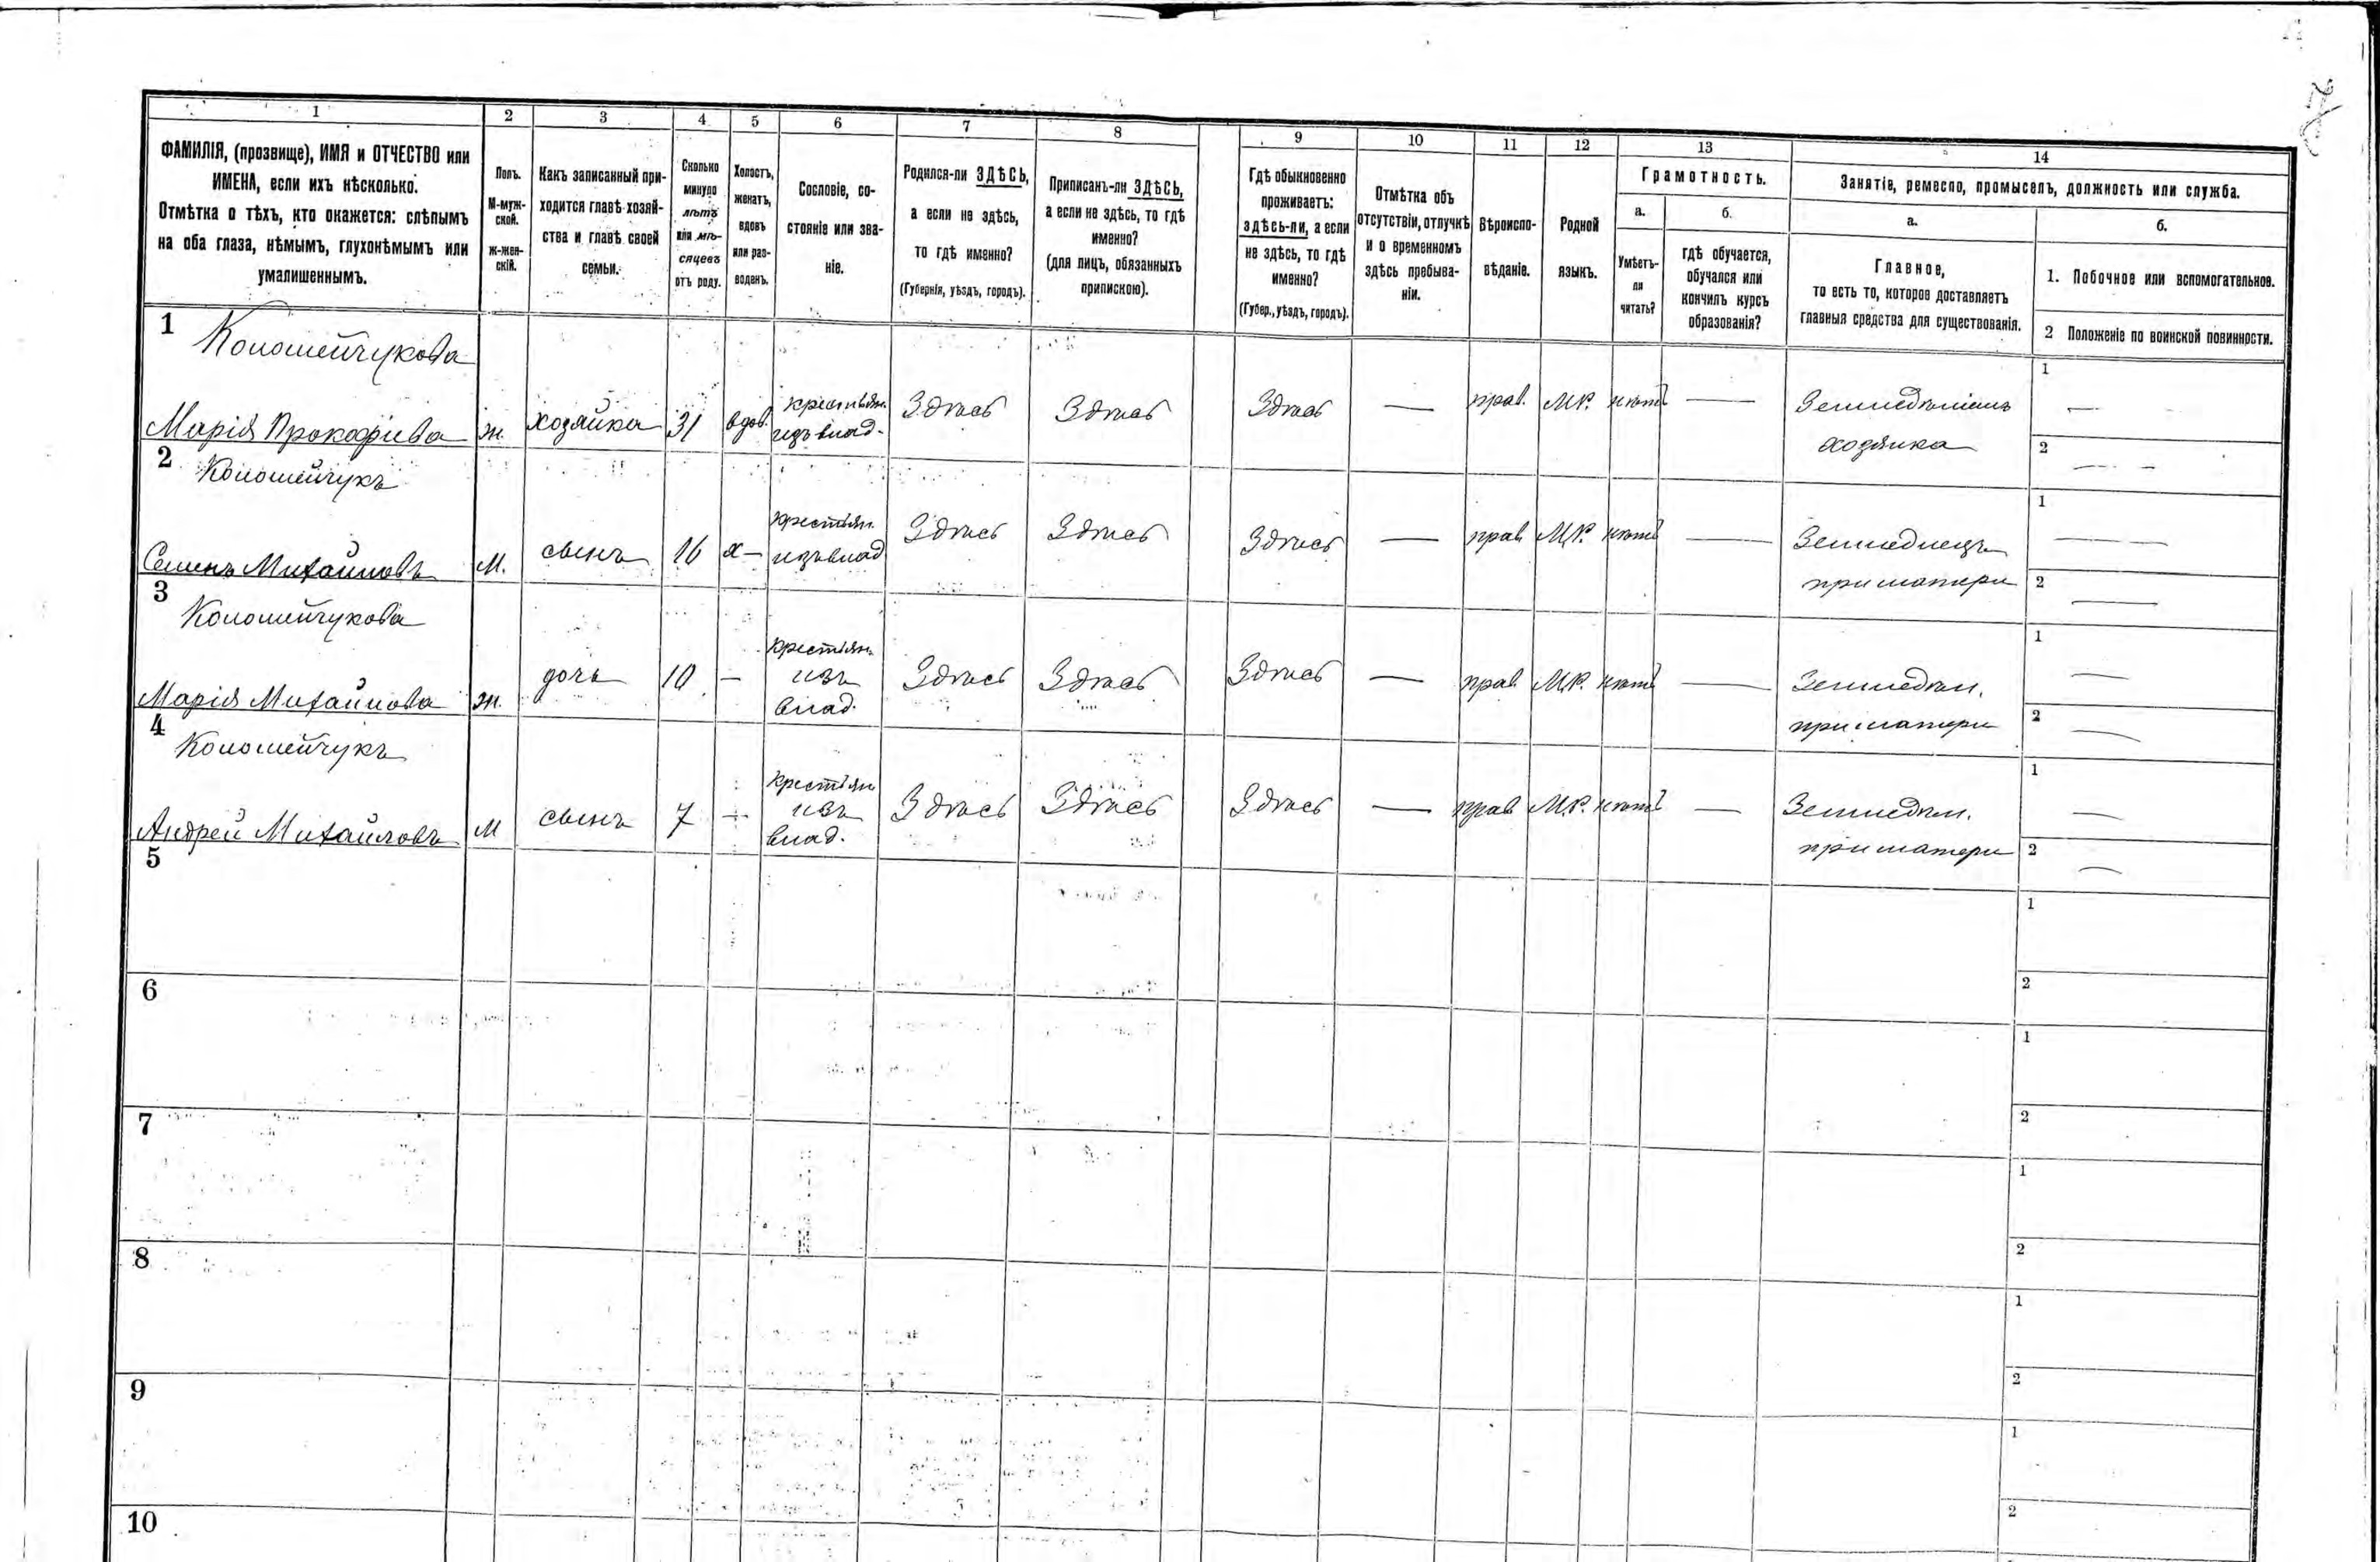 7
1 2 3 4 5 6 7 8 9 10 11 12 13 14
ФАМИЛІЯ, (прозвище), ИМЯ и ОТЧЕСТВО или
ИМЕНА, если ихъ нѣсколько.
Отмѣтка о тѣхъ, кто окажется: слѣпымъ
на оба глаза, нѣмымъ, глухонѣмымъ или
умалишеннымъ.
Полъ.
М-муж-
ской.
ж-жен-
скій.
Какъ записанный при-
ходится главѣ хозяй-
ства и главѣ своей
семьи.
Сколько
минуло
лѣтъ
или мѣ-
сяцевъ
отъ роду.
Холостъ,
женатъ,
вдовъ
или раз-
воденъ.
Сословіе, со-
стояніе или зва-
ніе.
Родился-ли ЗДѢСЬ,
а если не здѣсь,
то гдѣ именно?
(Губернія, уѣздъ, городъ).
Приписанъ-ли ЗДѢСЬ,
а если не здѣсь, то гдѣ
именно?
(для лицъ, обязанныхъ
припискою).
Гдѣ обыкновенно
проживаетъ:
здѣсь-ли, а если
не здѣсь, то гдѣ
именно?
(Губер., уѣздъ, городъ).
Отмѣтка объ
отсутствіи, отлучкѣ
и о временномъ
здѣсь пребыва-
ніи.
Вѣроиспо-
вѣданіе.
Родной
языкъ.
Грамотность.
а.
Умѣетъ-
ли
читать?
б.
гдѣ обучается,
обучался или
кончилъ курсъ
образованія?
Занятіе, ремесло, промыселъ, должность или служба.
а.
Главное,
то есть то, которое доставляетъ
главныя средства для существованія.
б.
1. Побочное или вспомогательное.
2 Положеніе по воинской повинности.
1 Коломейчукова
Марія Прокофиева ж. хозяйка 31 вдов. крестьян. Здѣсь Здѣсь Здѣсь — прав. М.Р. нѣтъ — Земледѣліемъ 1 —
изъ влад. хозяйка 2 —
2 Коломейчукъ
Семенъ Михайловъ М. сынъ 16 х — крестьян. Здѣсь Здѣсь Здѣсь — прав М.Р. нѣтъ — Земледѣлецъ 1 —
изъ влад при матери 2 —
3 Коломейчукова
Марія Михайлова ж. дочь 10 — крестьян. Здѣсь Здѣсь Здѣсь — прав М.Р. нѣтъ — Земледѣл. 1 —
изъ
влад. при матери 2 —
4 Коломейчукъ
Андрей Михайловъ М сынъ 7 — крестьян Здѣсь Здѣсь Здѣсь — прав М.Р. нѣтъ — Земледѣл. 1 —
изъ
влад. при матери 2 —
5 1
2
6 1
2
7 1
2
8 1
2
9 1
2
10